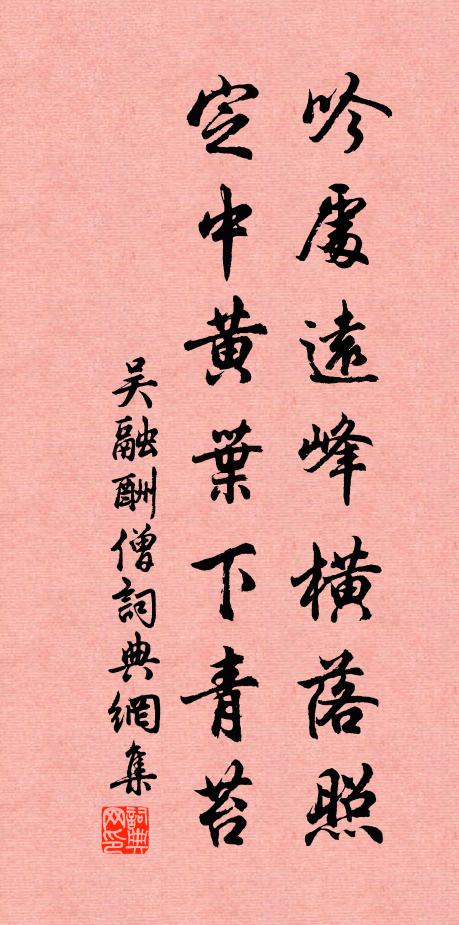 吟處遠峰橫落照
定中黃葉下青苔
吳融酬僧詞典網集
詞典網印